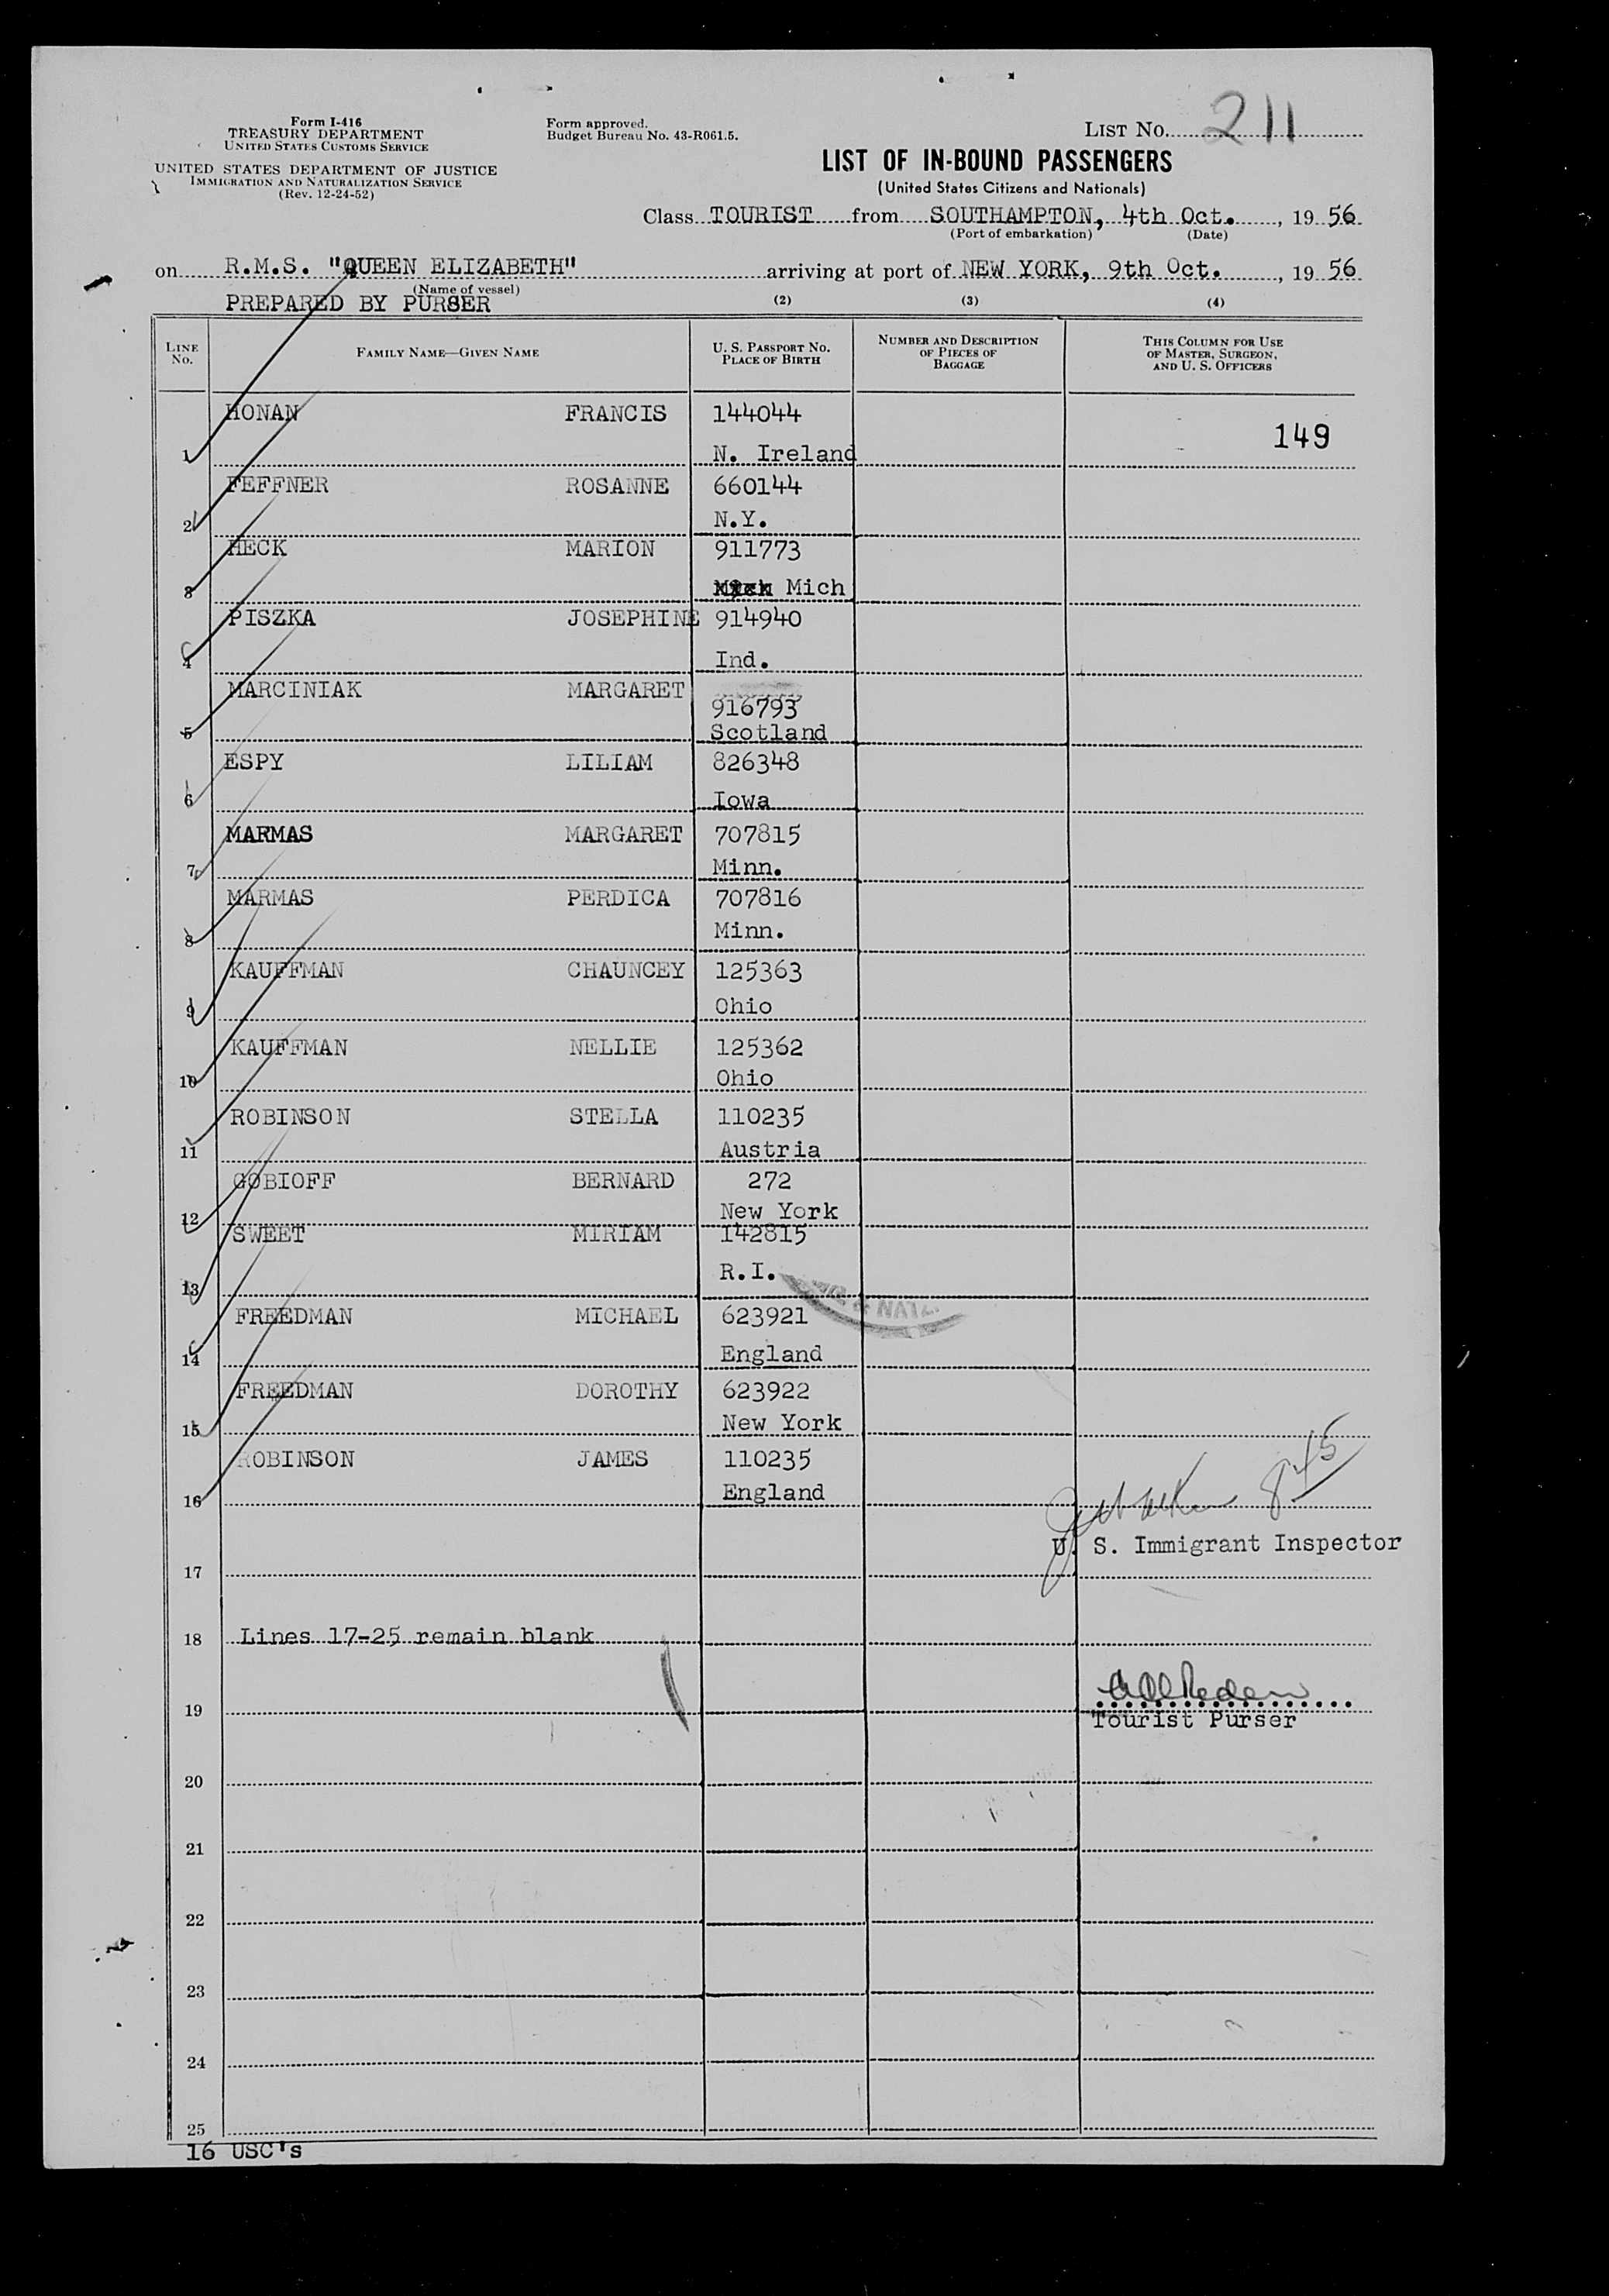 Form I-416
TREASURY DEPARTMENT
UNITED STATES CUSTOMS SERVICE
UNITED STATES DEPARTMENT OF JUSTICE
IMMIGRATION AND NATURALIZATION SERVICE
(Rev. 12-24-52)
Form approved.
Budget Bureau No. 43-R061.5.
LIST NO. 211
LIST OF IN-BOUND PASSENGERS
(United States Citizens and Nationals)
Class TOURIST from SOUTHAMPTON, 4th Oct. , 19 56
(Port of embarkation) (Date)
on R.M.S. "QUEEN ELIZABETH" arriving at port of NEW YORK, 9th Oct. , 19 56
(Name of vessel)
PREPARED BY PURSER (2) (3) (4)
LINE NO. FAMILY NAME—GIVEN NAME U. S. PASSPORT NO. PLACE OF BIRTH NUMBER AND DESCRIPTION OF PIECES OF BAGGAGE THIS COLUMN FOR USE OF MASTER, SURGEON, AND U. S. OFFICERS
HONAN FRANCIS 144044
149
1 N. Ireland
FEFFNER ROSANNE 660144
2 N.Y.
HECK MARION 911773
3 Mich
PISZKA JOSEPHINE 914940
4 Ind.
MARCINIAK MARGARET 916793
5 Scotland
ESPY LILIAM 826348
6 Iowa
MARMAS MARGARET 707815
7 Minn.
MARMAS PERDICA 707816
8 Minn.
KAUFFMAN CHAUNCEY 125363
9 Ohio
KAUFFMAN NELLIE 125362
10 Ohio
ROBINSON STELLA 110235
11 Austria
GOBIOFF BERNARD 272
12 New York
SWEET MIRIAM 142815
13 R.I.
& NATZ.
FREEDMAN MICHAEL 623921
14 England
FREEDMAN DOROTHY 623922
15 New York
ROBINSON JAMES 110235
16 England
845
U. S. Immigrant Inspector
17
18 Lines 17-25 remain blank
19
Tourist Purser
20
21
22
23
24
25
16 USC's